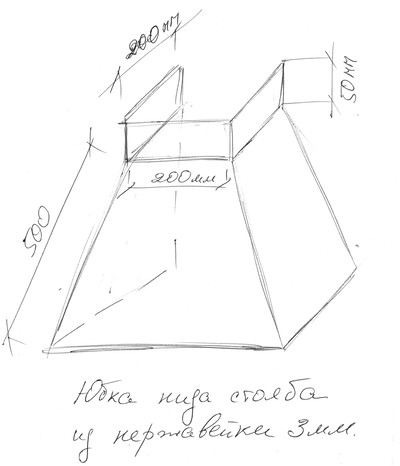 200мм
50мм
200мм
500
Юбка низа столба
из нержавейки 3мм.